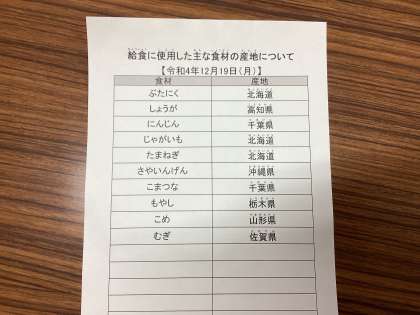 給食に使用した主な食材の産地について
【令和4年12月19日(月)】
食材 産地
ぶたにく 北海道
しょうが 高知県
にんじん 千葉県
じゃがいも 北海道
たまねぎ 北海道
さやいんげん 沖縄県
こまつな 千葉県
もやし 栃木県
こめ 山形県
むぎ 佐賀県